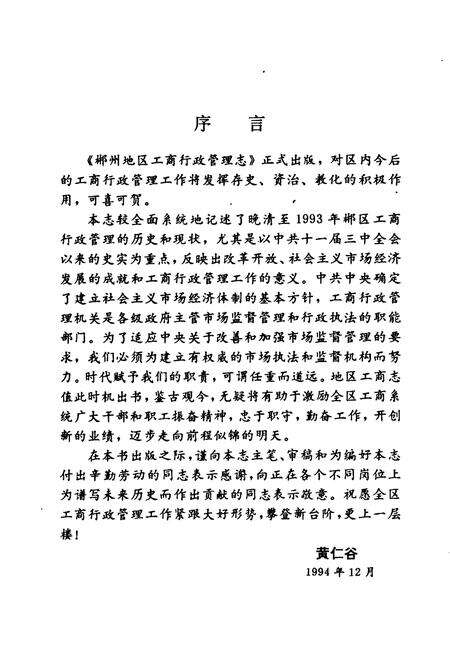 序 言
《郴州地区工商行政管理志》正式出版，对区内今后
的工商行政管理工作将发挥存史、资治、教化的积极作
用，可喜可贺。
本志较全面系统地记述了晚清至1993年郴区工商
行政管理的历史和现状，尤其是以中共十一届三中全会
以来的史实为重点，反映出改革开放、社会主义市场经济
发展的成就和工商行政管理工作的意义。中共中央确定
了建立社会主义市场经济体制的基本方针，工商行政管
理机关是各级政府主管市场监督管理和行政执法的职能
部门。为了适应中央关于改善和加强市场监督管理的要
求，我们必须为建立有权威的市场执法和监督机构而努
力。时代赋予我们的职责，可谓任重而道远。地区工商志
值此时机出书，鉴古观今，无疑将有助于激励全区工商系
统广大干部和职工振奋精神，忠于职守，勤奋工作，开创
新的业绩，迈步走向前程似锦的明天。
在本书出版之际，谨向本志主笔、审稿和为编好本志
付出辛勤劳动的同志表示感谢，向正在各个不同岗位上
为谱写未来历史而作出贡献的同志表示敬意。祝愿全区
工商行政管理工作紧跟大好形势，攀登新台阶，更上一层
楼！
黄仁谷
1994年12月